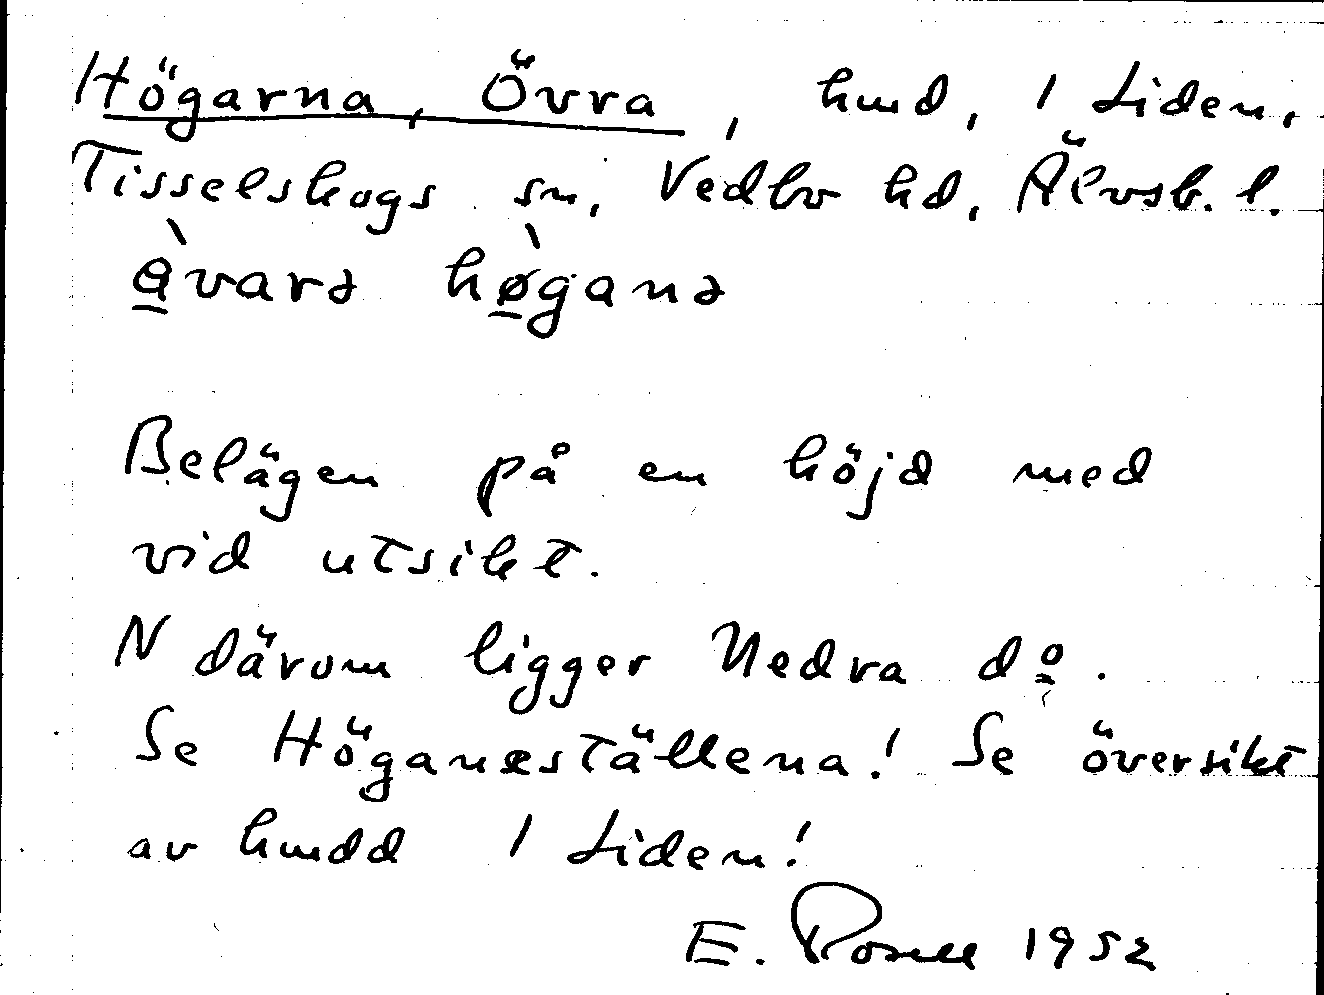 Högarna, Övra, hmd, 1 Liden,
Tisselskogs sn, Vedbo hd, Älvsb. l.
ə̀varə hø̀ganə
Belägen på en höjd med
vid utsikt.
N därom ligger Nedra dº.
Se Höganeställena! Se översikt
av hmdd 1 Liden!
E. Rosell 1952